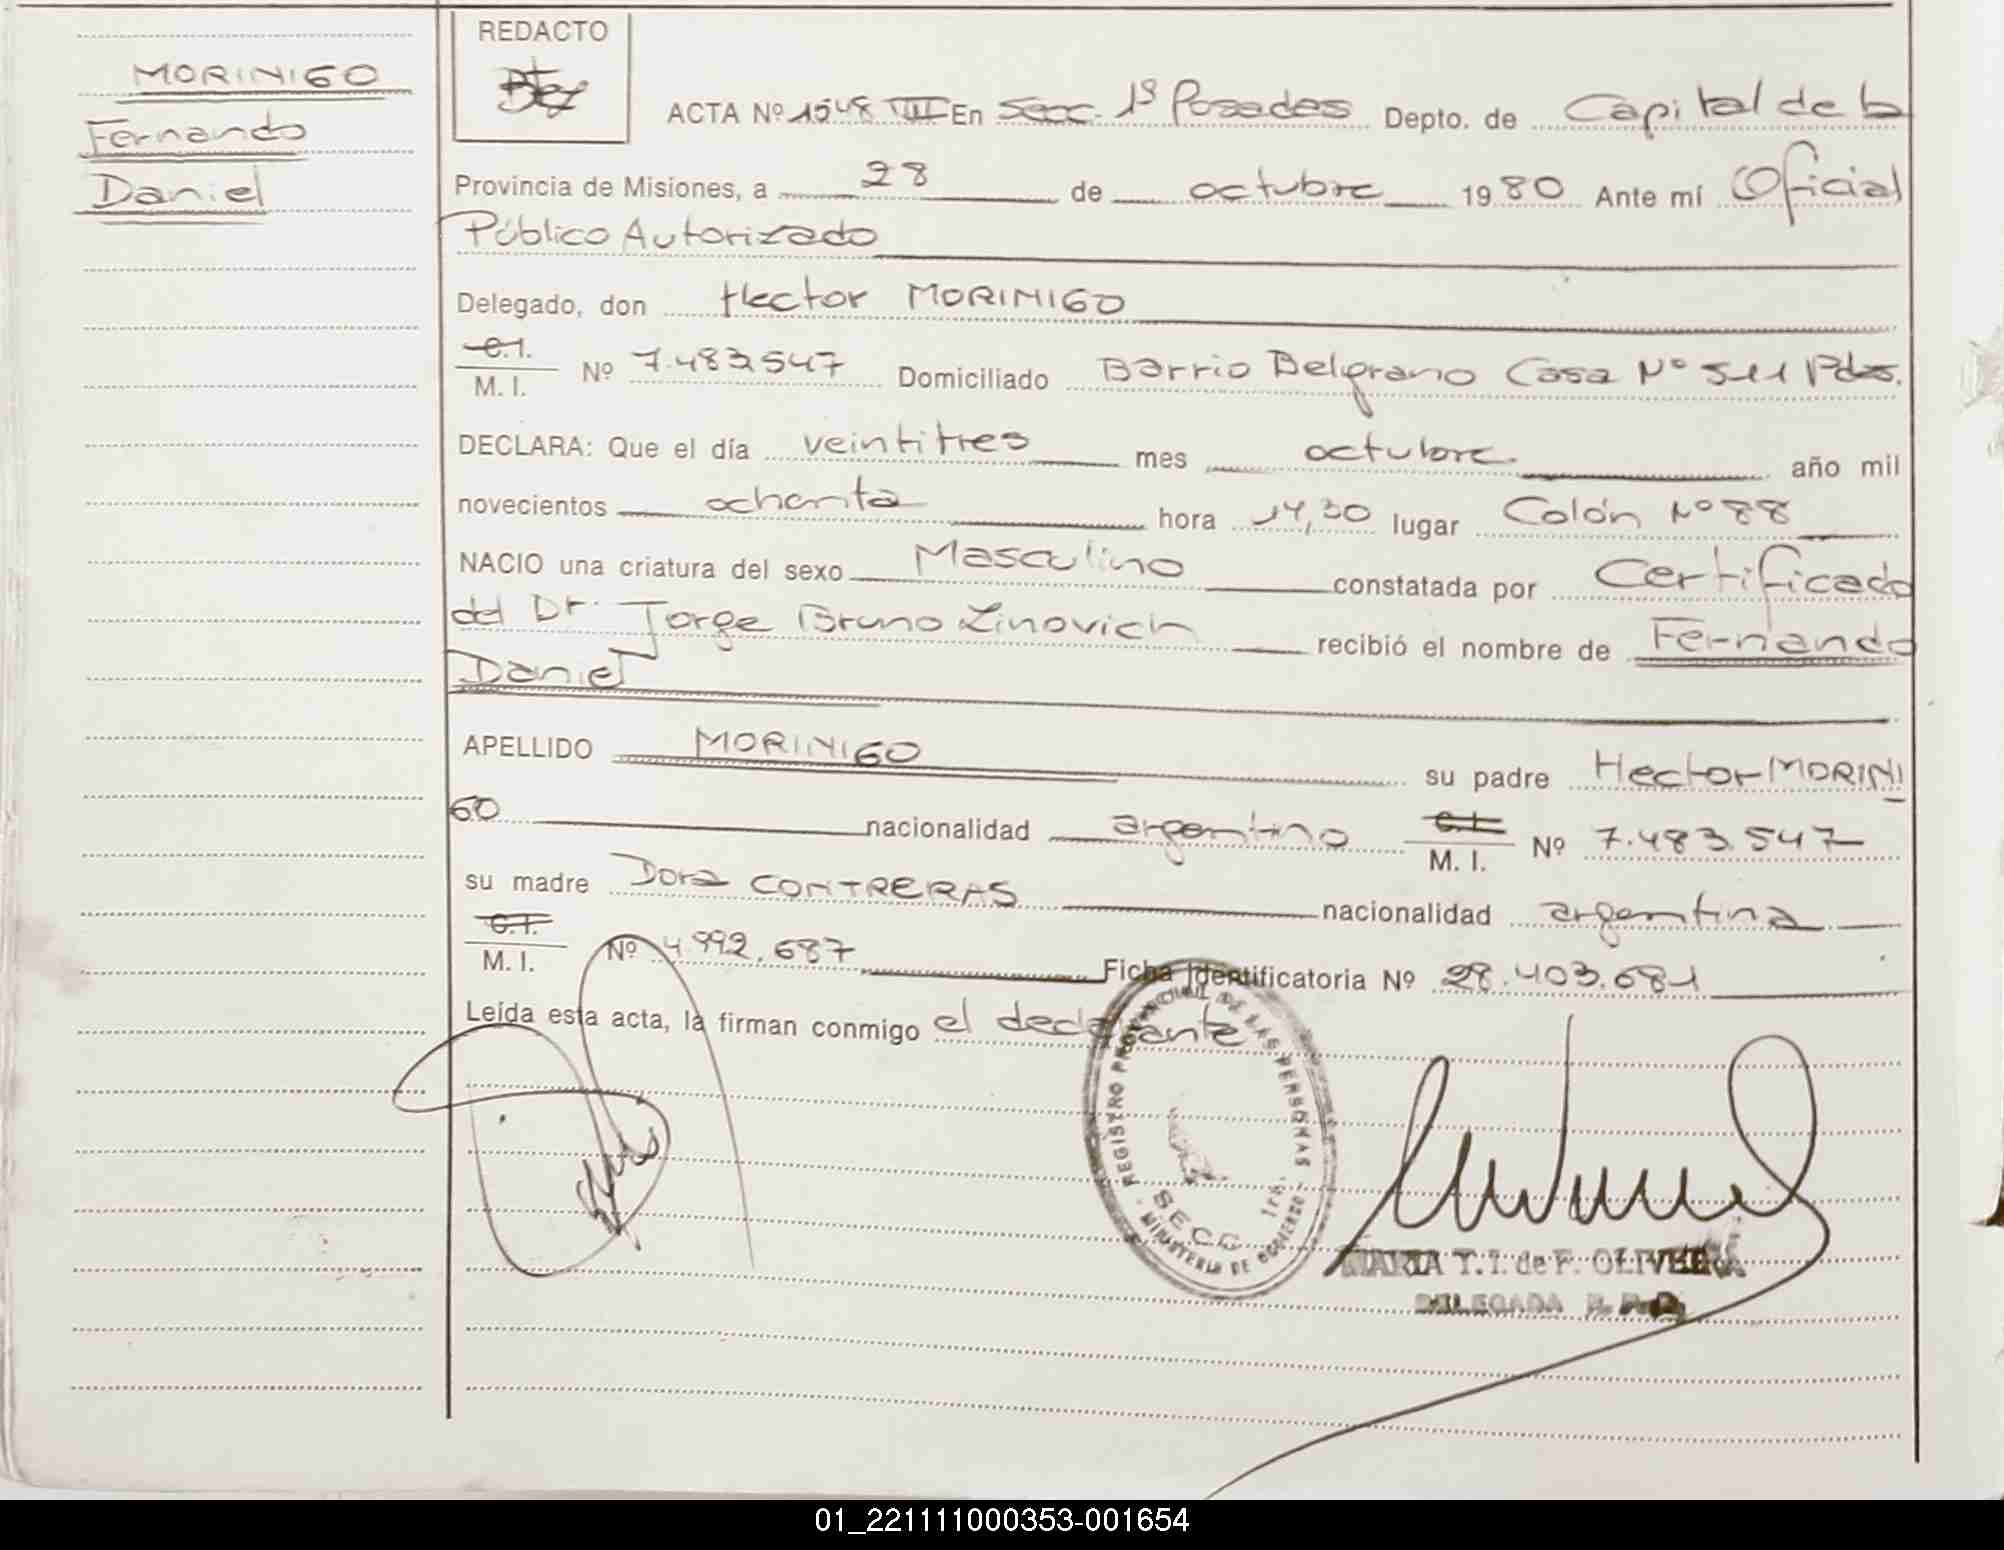 MORINIGO
Fernando
Daniel
REDACTO
ACTA Nº 1548 VIII En Secc. 1º Posadas Depto. de Capital de la
Provincia de Misiones, a 28 de octubre 1980 Ante mí Oficial
Público Autorizado
Delegado, don Hector MORINIGO
C.I.
M. I. Nº 7.483.547 Domiciliado Barrio Belgrano Casa Nº 511 Pdas.
DECLARA: Que el día veintitres mes octubre. año mil
novecientos ochenta hora 14,30 lugar Colón Nº 88
NACIO una criatura del sexo Masculino constatada por Certificado
del Dr. Jorge Bruno Zinovich recibió el nombre de Fernando
Daniel
APELLIDO MORINIGO su padre Hector MORINI
GO nacionalidad argentino C.I.
M. I. Nº 7.483.547
su madre Dora CONTRERAS nacionalidad argentina
C.I.
M. I. Nº 4.992.687 Ficha Identificatoria Nº 28.403.681
Leída esta acta, la firman conmigo el declarante
REGISTRO PROVINCIAL DE LAS PERSONAS
SECC. 1ra.
MINISTERIO DE GOBIERNO
MARIA T. I. de F. OLIVERA
DELEGADA R. P. P.
01_221111000353-001654